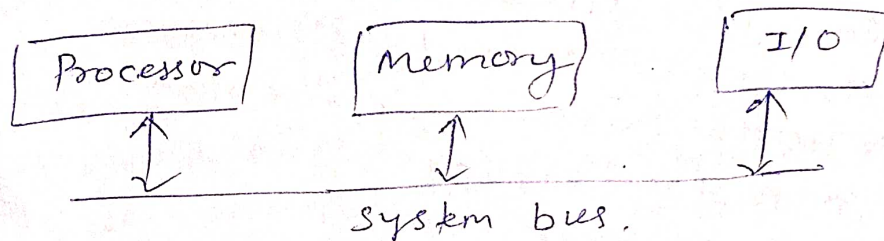 Processor Memory I/O
system bus.